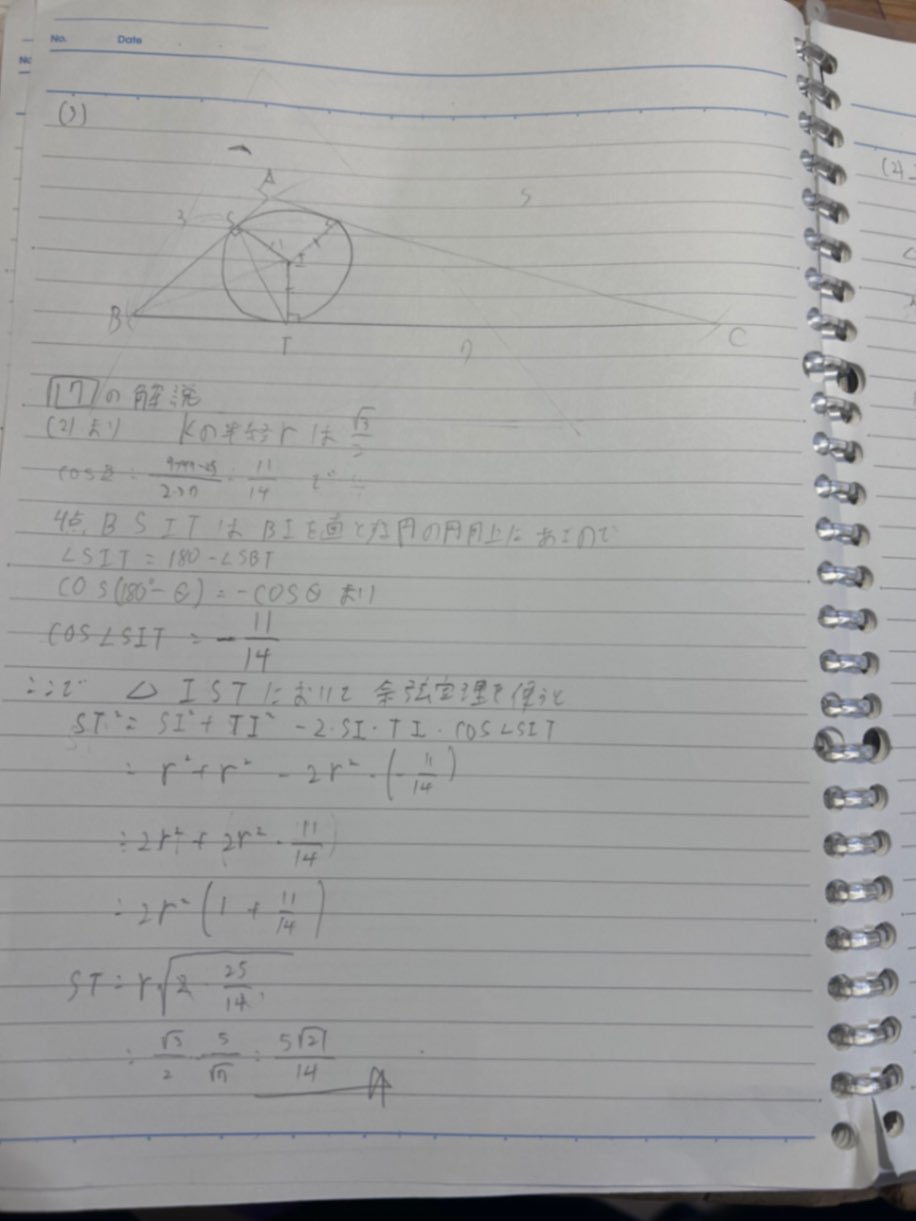 No. Date
(3)
A
3
S
5
I
B
T
7
C
17の解説
(2)より Kの半径rは √3/2
cosB = 9+49-25/2・3・7 = 11/14
4点 B S I T は BIを直とな円の円周上にあるので
∠SIT = 180 - ∠SBT
cos(180° - θ) = -cosθ より
cos∠SIT = - 11/14
ここで △ISTにおいて 余弦定理を使うと
ST² = SI² + TI² - 2・SI・TI・cos∠SIT
= r² + r² - 2r²・(-11/14)
= 2r² + 2r²・11/14
= 2r² (1 + 11/14)
ST = r√2・25/14
= √3/2・5/√7 = 5√21/14
(2)